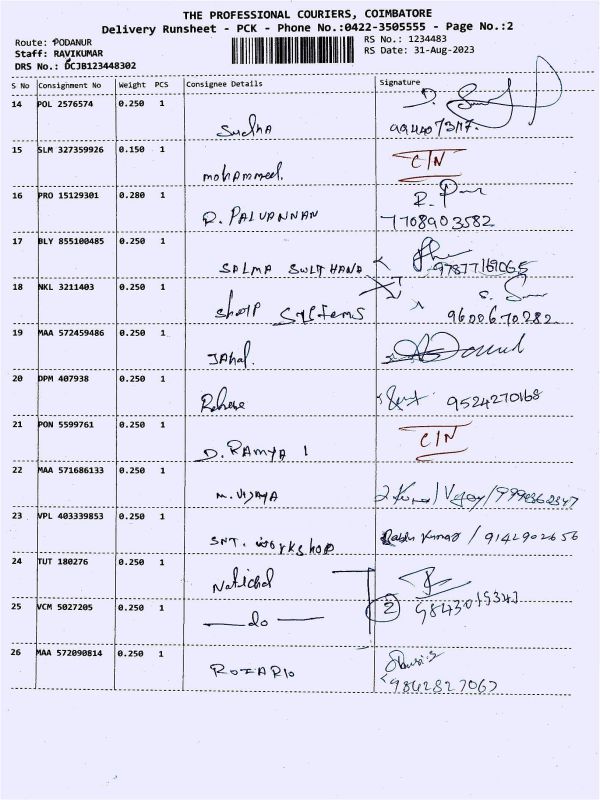 THE PROFESSIONAL COURIERS, COIMBATORE
Delivery Runsheet - PCK - Phone No.:0422-3505555 - Page No.:2
Route: PODANUR
RS No.: 1234483
Staff: RAVIKUMAR
RS Date: 31-Aug-2023
DRS No.: DCJB123448302
S No Consignment No Weight PCS Consignee Details Signature
14 POL 2576574 0.250 1
Sudha
15 SLM 327359926 0.150 1 C/N
mohammed.
16 PRO 15129301 0.280 1
D. PALVANNAN 7708903582
17 BLY 855100485 0.250 1
SALMA SULTHANA
18 NKL 3211403 0.250 1
Sharp Systems 9600670282
19 MAA 572459486 0.250 1
20 DPM 407938 0.250 1
9524270168
21 PON 5599761 0.250 1 C/N
D. RAMYA 1
22 MAA 571686133 0.250 1
M. VIJAYA
23 VPL 403339853 0.250 1
SNT. workshop / 9142902656
24 TUT 180276 0.250 1
25 VCM 5027205 0.250 1 2
do
26 MAA 572090814 0.250 1
ROZARIO 9842827067